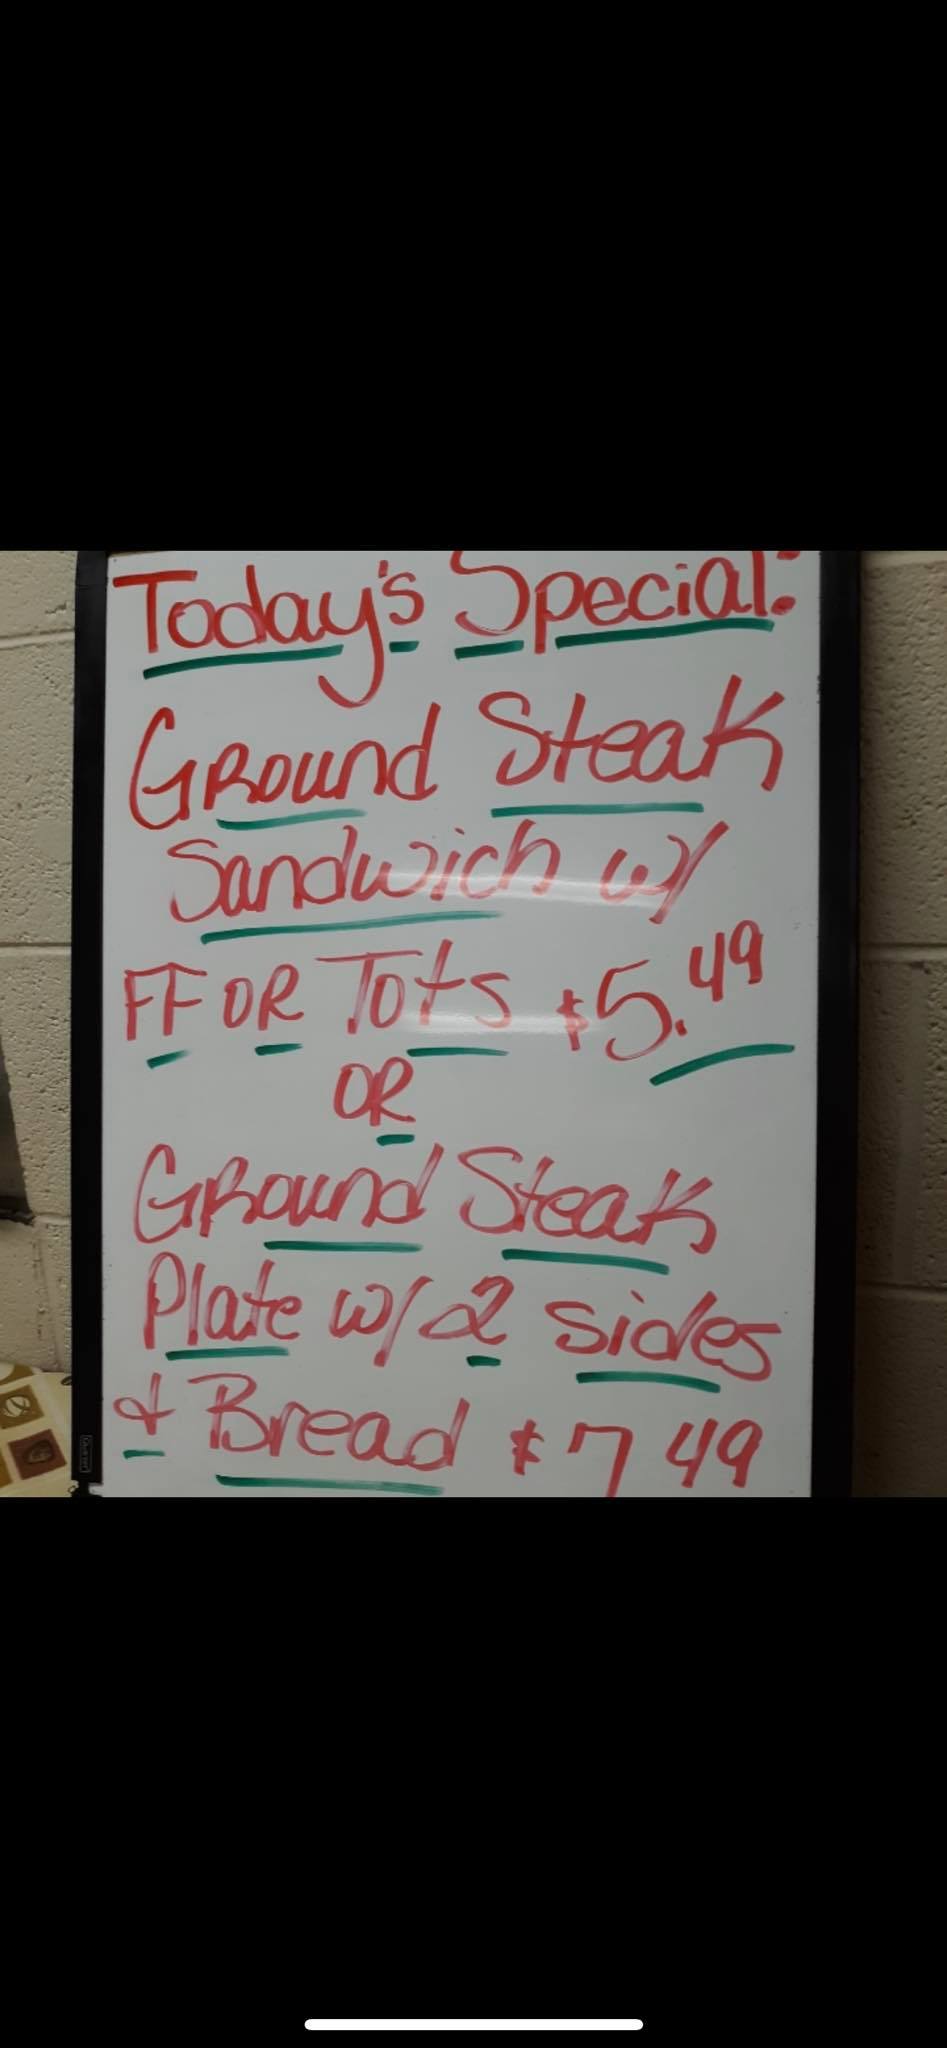 Today's Special:
Ground Steak
Sandwich w/
FF OR Tots $5.49
OR
Ground Steak
Plate w/ 2 sides
& Bread $7 49
Quartet